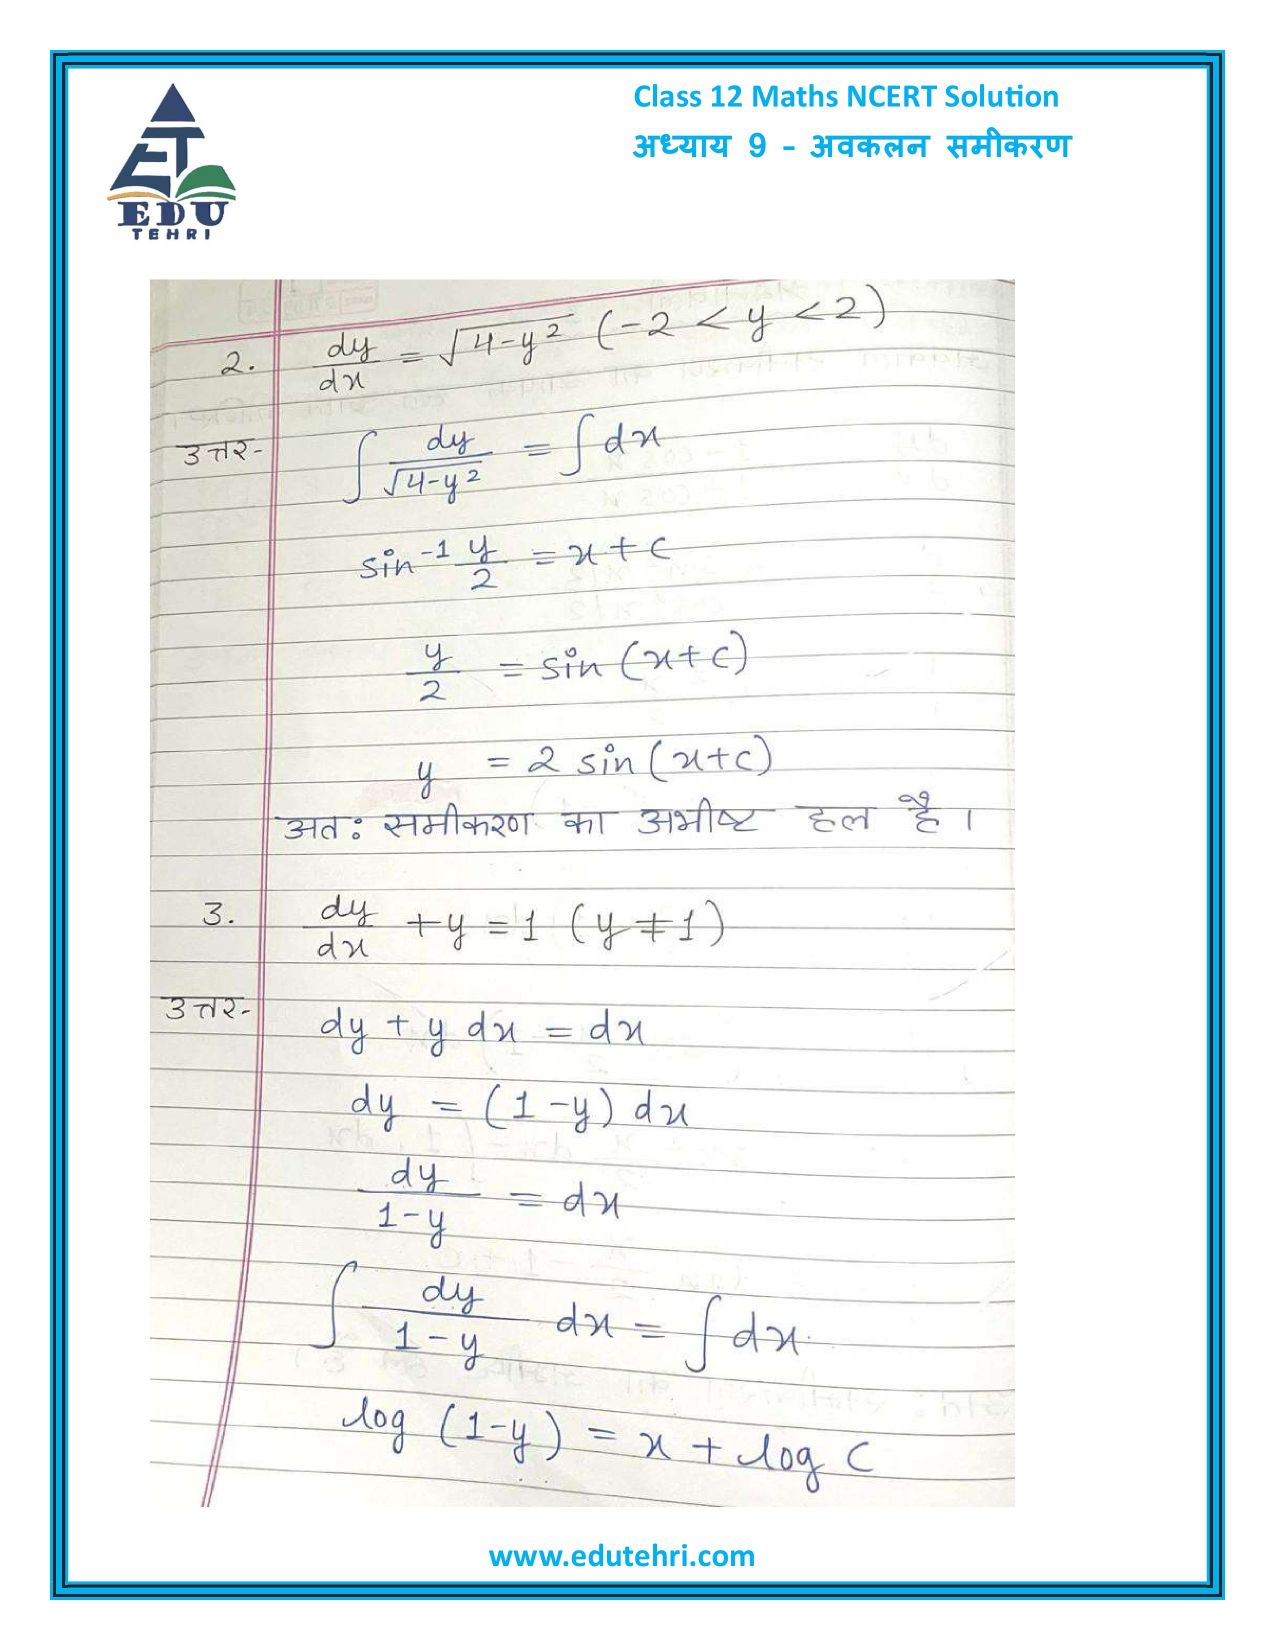 Class 12 Maths NCERT Solution
अध्याय 9 - अवकलन समीकरण
EDU
TEHRI
2. dy/dx = √4-y² (-2 < y < 2)
उत्तर- ∫ dy/√4-y² = ∫ dx
sin⁻¹ y/2 = x + c
y/2 = sin (x+c)
y = 2 sin (x+c)
अतः समीकरण का अभीष्ट हल है ।
3. dy/dx + y = 1 (y ≠ 1)
उत्तर- dy + y dx = dx
dy = (1-y) dx
dy/1-y = dx
∫ dy/1-y dx = ∫ dx
log (1-y) = x + log C
www.edutehri.com